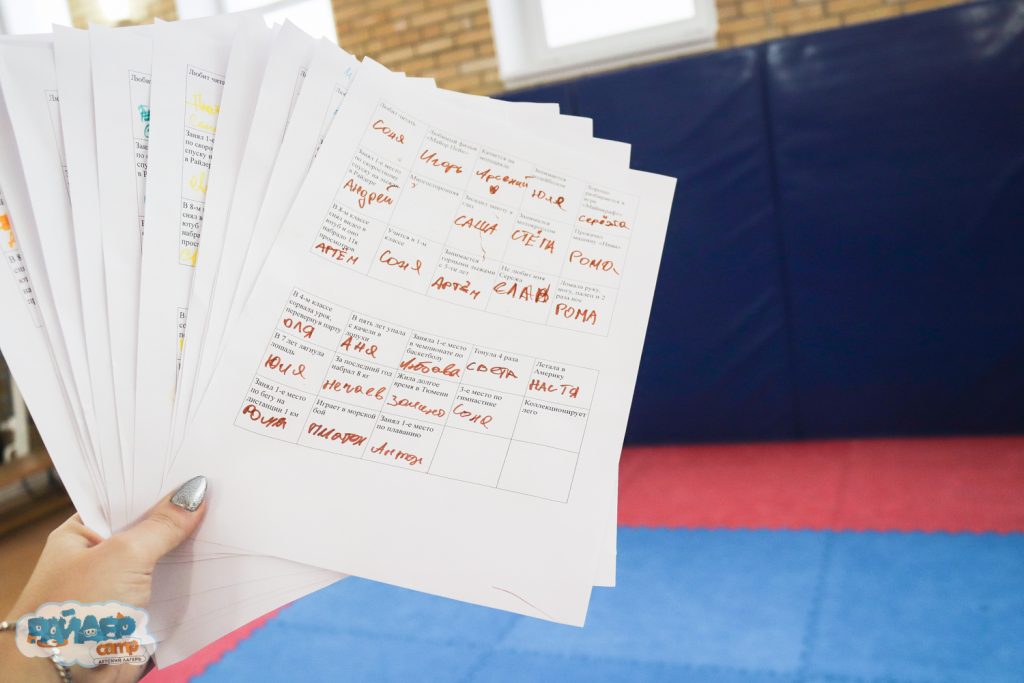 Любит читать
СОНЯ
Любимый фильм
«Майор Пейн»
Игорь
Катается на
мотоцикле
Арсений
Занимается
волейболом
Юля
Хорошо
разбирается в
игре
«Майнкрафт»
Серёжа
Занял 1-е место
по скоростному
спуску на лыжах
в Райдере
Андрей
Многосторонняя
САША
Занимался
СТЁПА
РОМА
В 8-м классе
снял видео в
ютуб и оно
набрало 11к
просмотров
АРТЁМ
Учится в 1-м
классе
СОНЯ
Занимается
горными лыжами
с 3-ти лет
АРТЁМ
Не любит имя
Сережа
СЛАВ
Ломала руку,
ногу, палец и 2
раза нос
РОМА
В 4-м классе
сорвала урок,
перевернув парту
ОЛЯ
В пять лет упала
с качели в
лопухи
АНЯ
Заняла 1-е место
в чемпионате по
баскетболу
Любовь
Тонула 4 раза
СВЕТА
Летала в
Америку
НАСТЯ
В 7 лет лягнула
лошадь
Юля
За последний год
набрал 8 кг
Нечаев
Жила долгое
время в Тюмени
3-е место по
гимнастике
Соня
Коллекционирует
лего
Занял 1-е место
по бегу на
дистанции 1 км
РОМА
Играет в морской
бой
ПЛАТОН
Занял 1-е место
по плаванию
Антон
РАЙДЕР
camp
ДЕТСКИЙ ЛАГЕРЬ